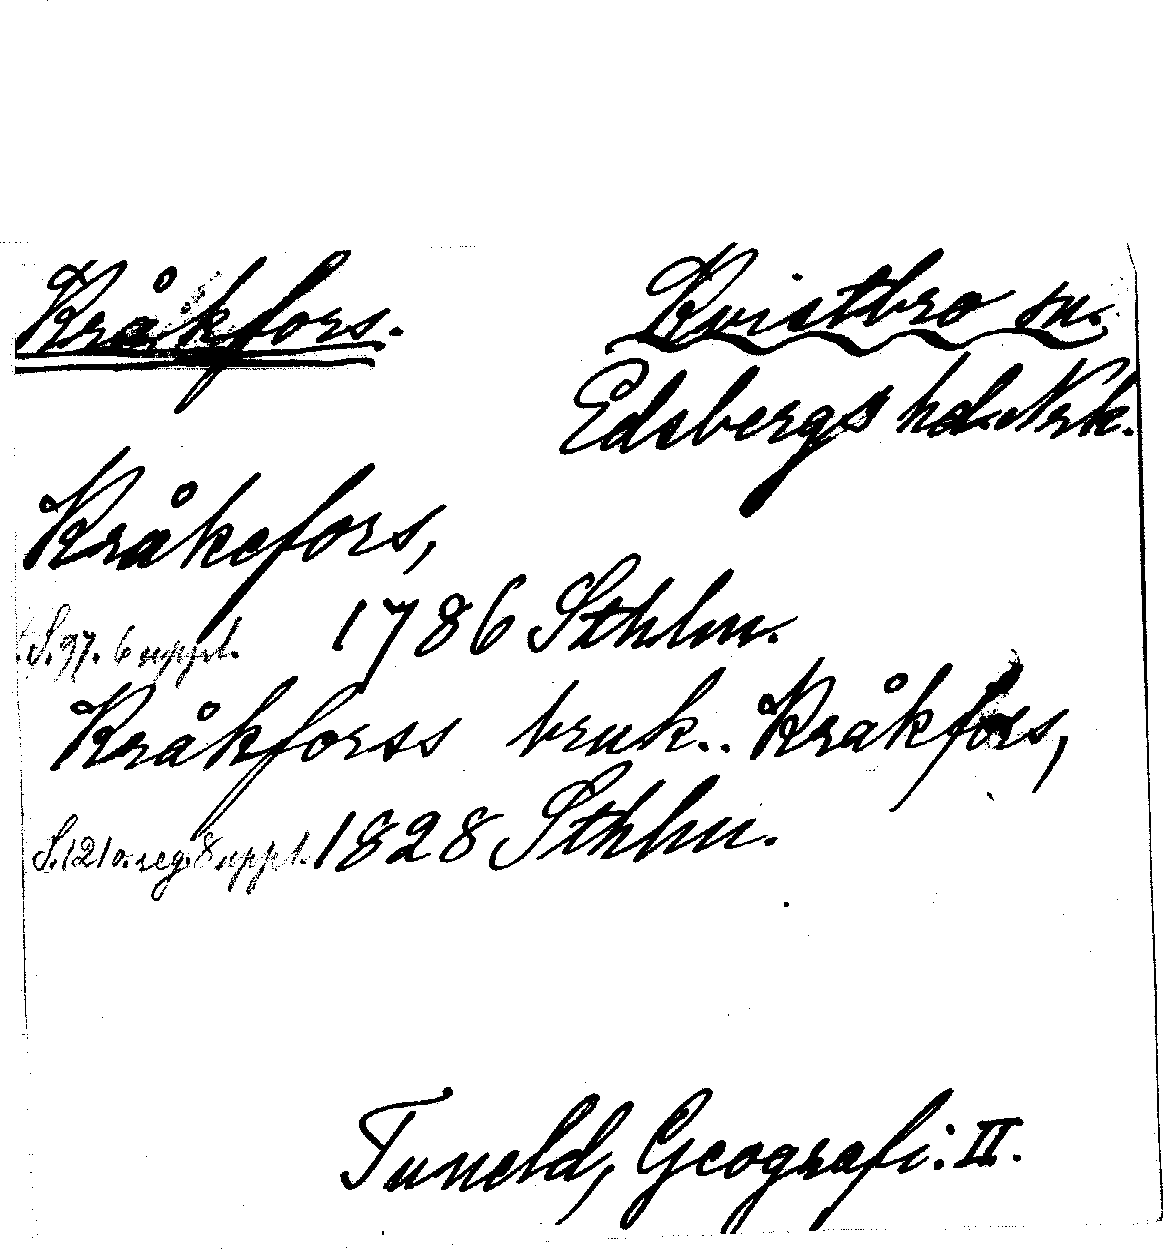 Kråkfors. Kvistbro sn.
Edsbergs hd. Nrk.
Kråkefors,
S. 97. 6 uppl. 1786 Sthlm.
Kråkforss bruk.. Kråkfors,
S. 121 o. reg. 8 uppl. 1828 Sthlm.
Tuneld, Geografi: II.